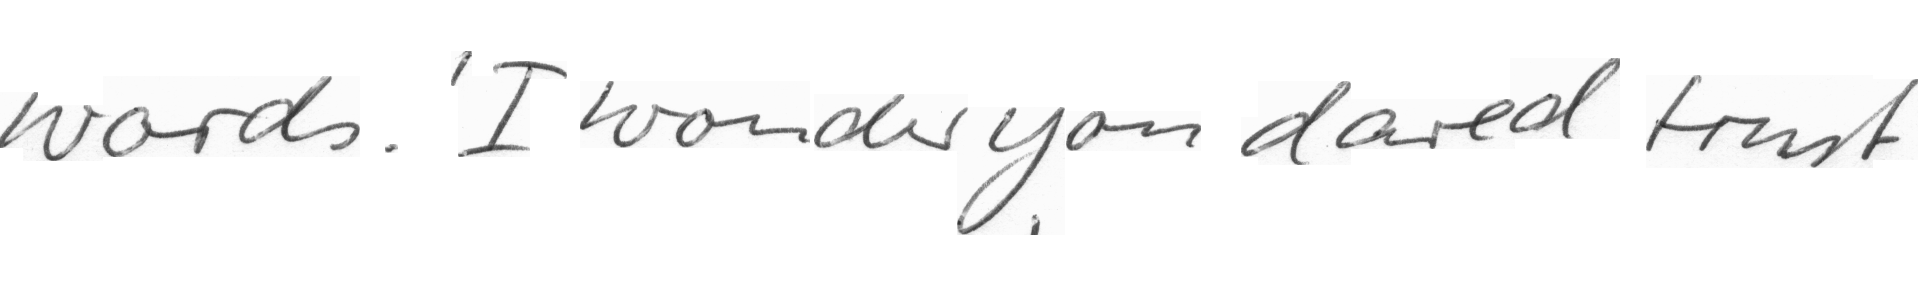 words. 'I wonder you dared trust